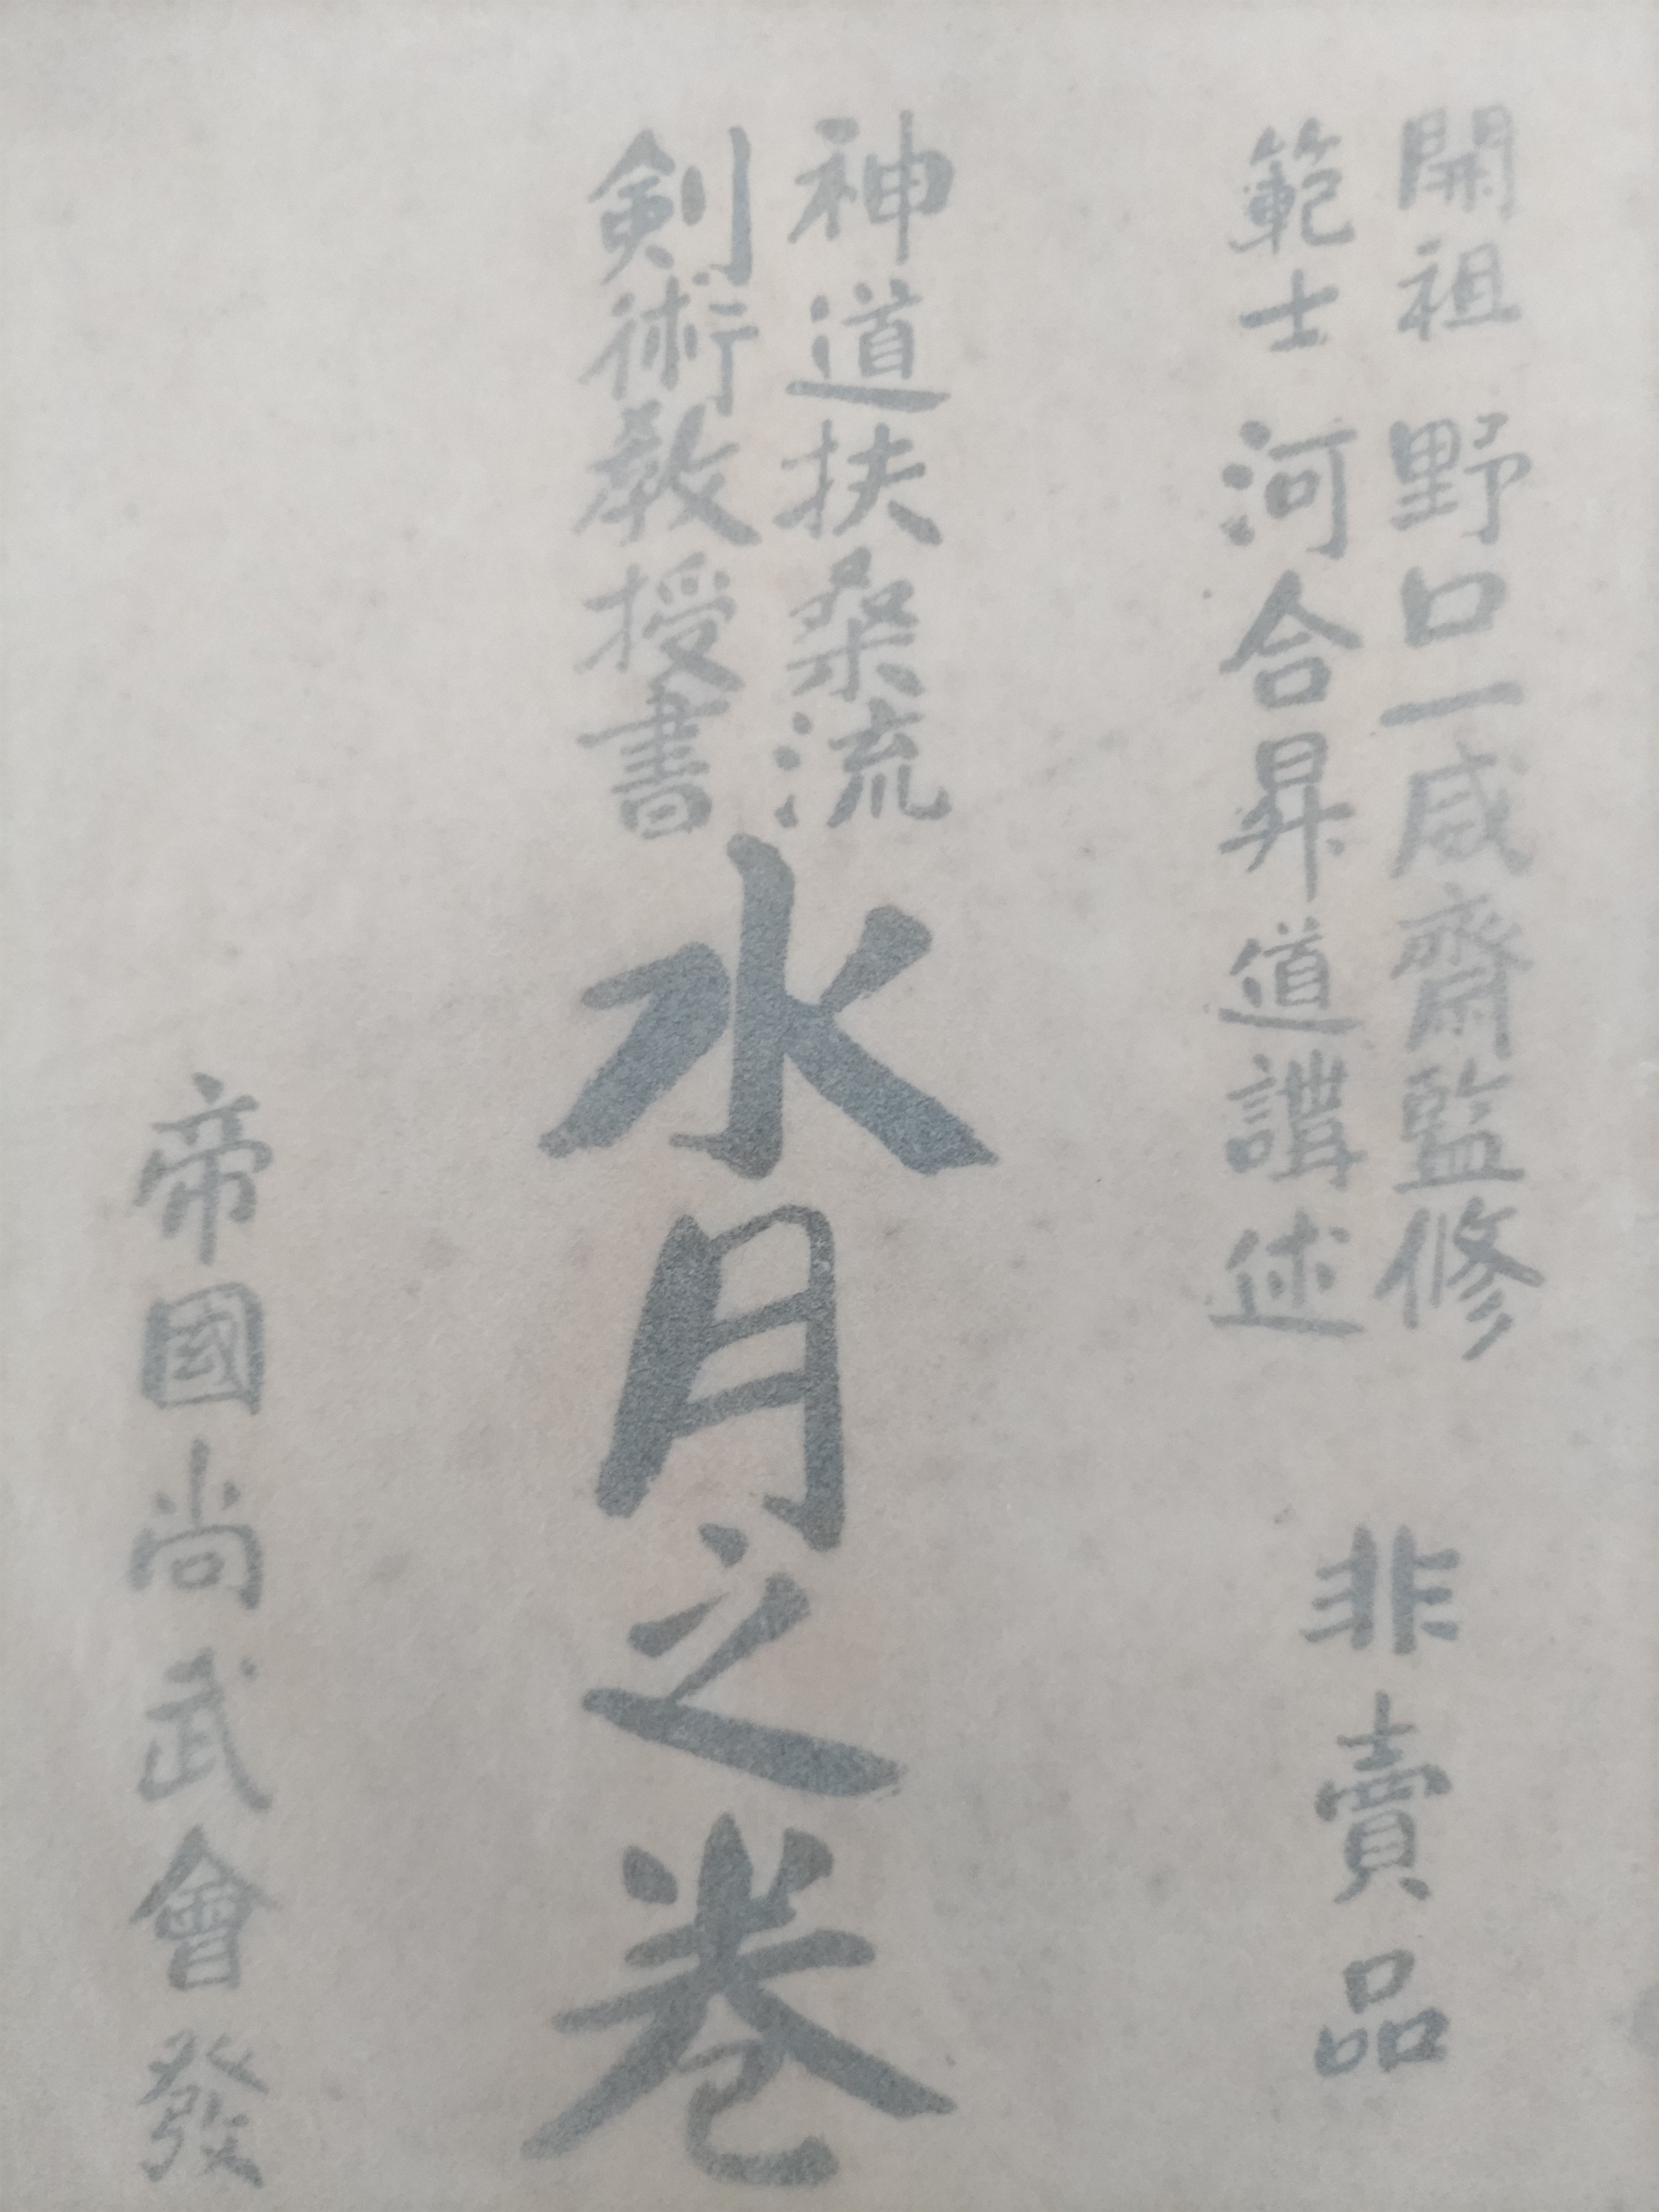 開祖 野口一威齋監修
範士 河合昇道講述
非賣品
神道扶桑流
剣術教授書
水月之巻
帝國尚武會發